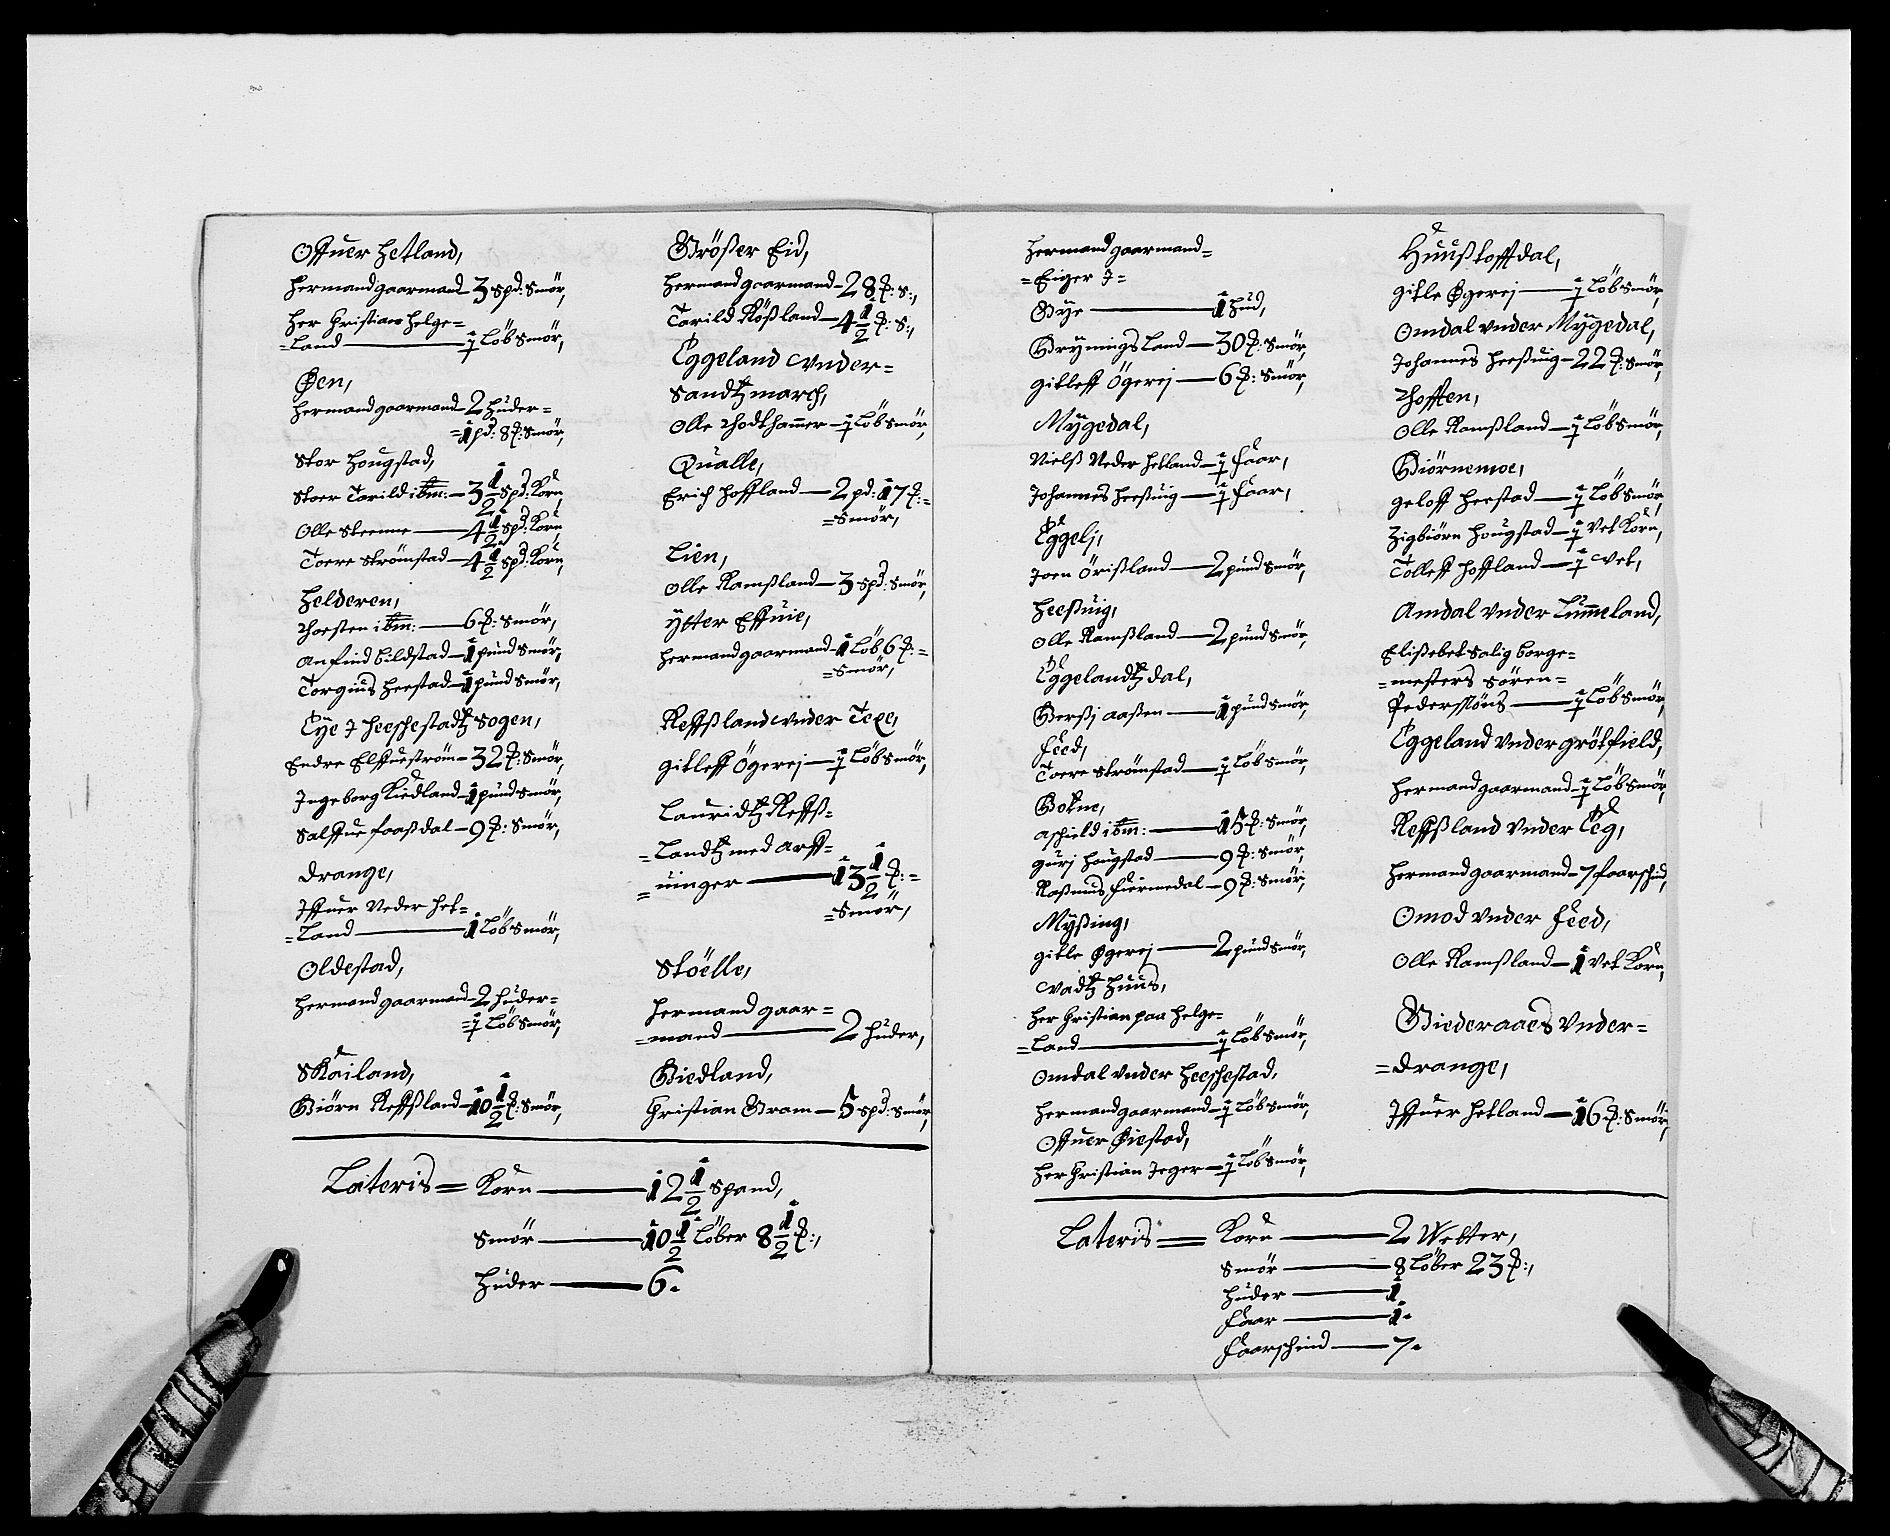 Offuer Hetland,
Hermand gaarmand - 3 spd: Smör,
Her Christian Helge=
=Land — ½ Löb Smör,
Øen,
Hermand gaarmand - 2 Huder=
=1 pd: 8 ℔: Smör,
Stor Hougstad,
Stoer Tarild ibm: — 3 1/2 spd: Korn,
Olle Steenne — 4 1/2 spd: Korn,
Toere Strömstad — 4 1/2 spd: Korn,
Helderen,
Thorsten ibm: — 6 ℔: Smör,
Anfind Bildstad — 1 pund Smör,
Torgius Heestad — 1 pund Smör,
Eye J Heeschestadtz Sogen,
Endre Elffueström — 32 ℔: Smör,
Jngeborg Kiedland — 1 pund Smör,
Salffue faassdal — 9 ℔: Smör,
Drange,
Jffuer Neder Het=
=Land — 1 Löb Smör,
Oldestad,
Hermand gaarmand - 2 Huder=
=½ Löb Smör,
Skailand,
Biörn Reffssland — 10 1/2 ℔: Smör,
Grösser Eid,
Hermand gaarmand - 28 ℔: S:,
Tarild Rössland — 4 1/2 ℔: S:,
Eggeland vnder=
Sandtz march,
Olle Thodthammer — ½ Löb Smör,
Qualle,
Erich Hoffland — 2 pd: 17 ℔:=
=Smör,
Lien,
Olle Ramssland — 3 spd: Smör,
Ytter Effuie,
Hermand gaarmand - 1 Löb 6 ℔:=
=Smör,
Reffssland vnder Texe,
Gitleff Ögerej — ½ Löb Smör,
Lauridtz Reffss=
=Landtz med Arff=
=uinger — 13 1/2 ℔:=
=Smör,
Stöelle,
Hermand gaar=
=mand — 2 Huder,
Giedland,
Christian Gram — 5 spd: Smör,
Lateris = Korn — 12 1/2 Spand,
Smör — 10 1/2 Löber 8 1/2 ℔:,
Huder — 6.
Hermand gaarmand=
=Eiger J=
Gye — 1 Hud,
Grynings Land — 30 ℔: Smör,
Gitleff Ögerej — 6 ℔: Smör,
Mygedal,
Nielss Neder Hetland — ½ faar,
Johannes Heessuig — ½ faar,
Eggelj,
Joen Örissland — 2 pund Smör,
Heessuig,
Olle Ramssland — 2 pund Smör,
Eggelandtz dal,
Berssj aassen — 1 pund Smör,
feed,
Toere Strömstad — ½ Löb Smör,
Aschield ibm: — 15 ℔: Smör,
Gurj Hougstad — 9 ℔: Smör,
Rassmus fiermedal — 9 ℔: Smör,
Myssing,
Gitle Øgerej — 2 pund Smör,
Vadtz Huus,
Her Christian paa Helge=
=Land — ½ Löb Smör,
Omdal vnder Heeschestad,
Hermand gaarmand — ½ Löb Smör,
Offuer Øiestad,
Her Christian Jeger — ½ Löb Smör,
Huusstoffdal,
Gitle Øgerej — ½ Löb Smör,
Omdal vnder Mygedal,
Johannes Heessuig — 22 ℔: Smör,
Thofften,
Olle Ramssland — ½ Löb Smör,
Biörnemoe,
Geloff Heestad — ½ Löb Smör,
Zigbiörn Hougstad — ½ Vet Korn,
Tolleff Hoffland — ½ Vet,
Amdal vnder Lummeland,
Elissebet Salig Borge=
=mesters Sören=
Pederssöns — ½ Löb Smör,
Eggeland vnder grötfield,
Hermand gaarmand — ½ Löb Smör,
Reffssland vnder Eeg,
Hermand gaarmand — 7 faarschind,
Omod vnder feed,
Olle Ramssland — 1 Vet Korn,
Giederaaes vnder=
=drange,
Jffuer Hetland — 16 ℔: Smör,
Lateris = Korn — 2 Wetter,
Smör — 8 Löber 23 ℔:,
Huder — 1
faar — 1.
faarschind — 7.